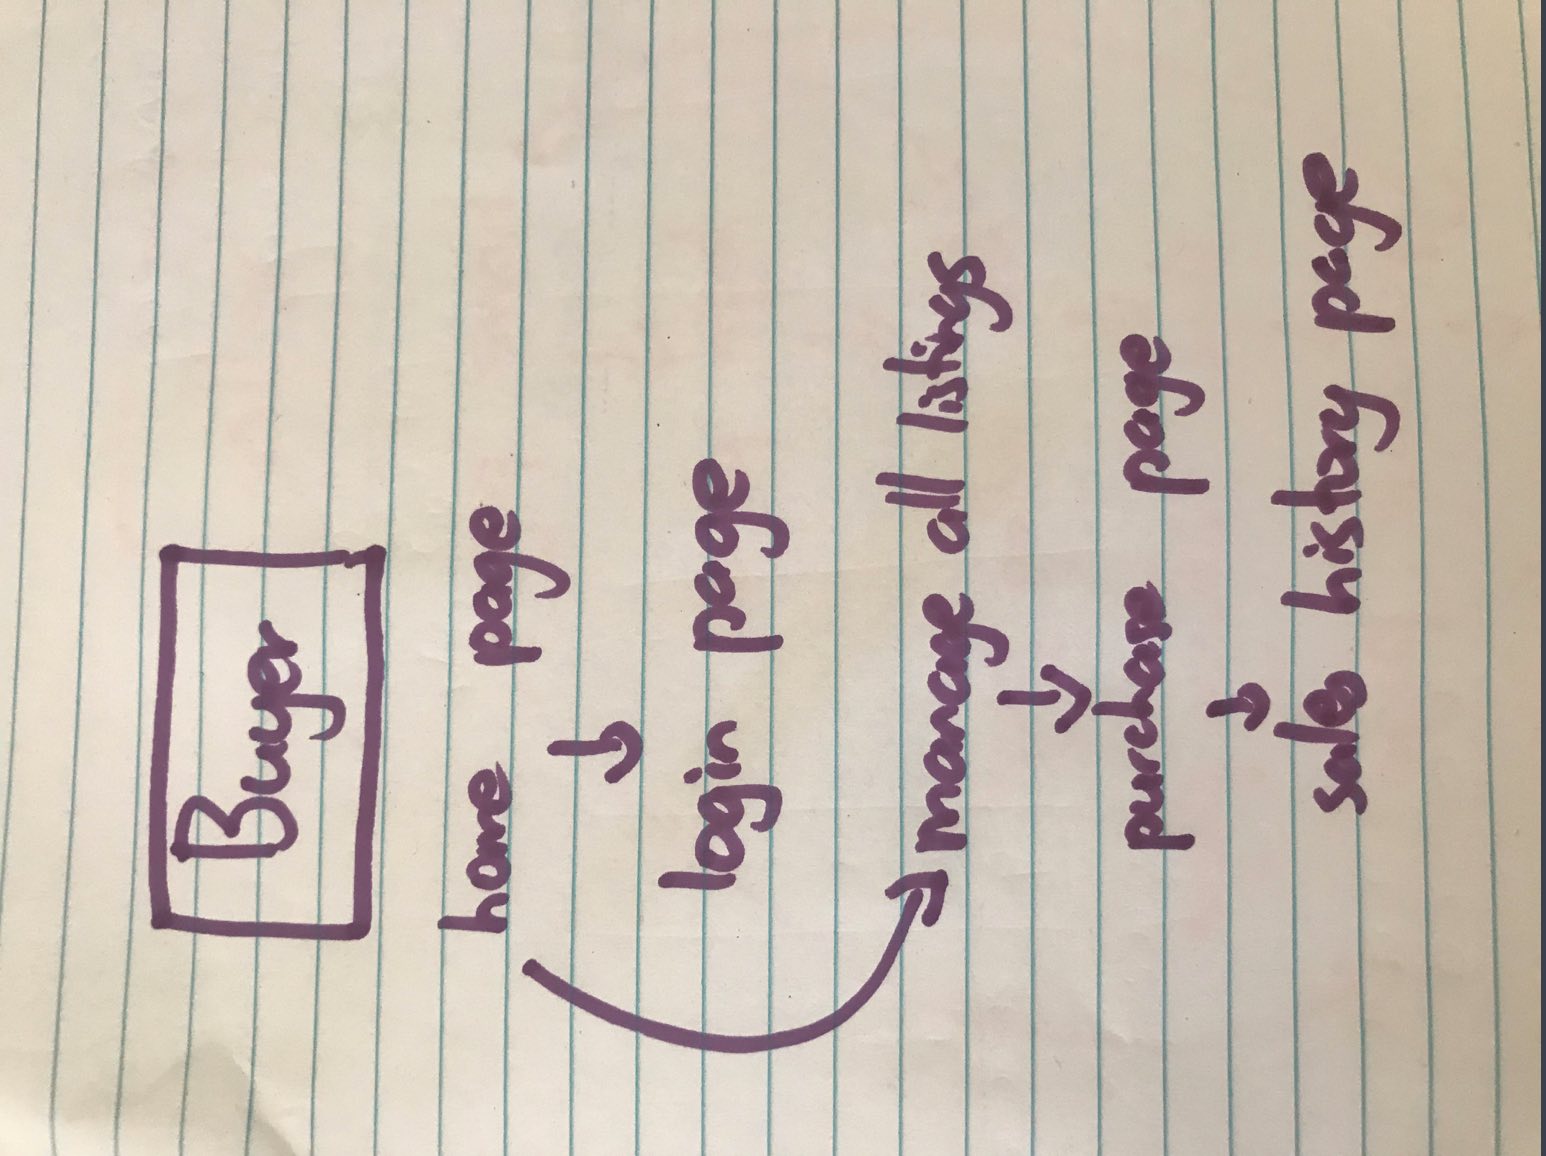 Buyer
home page
login page
manage all listings
purchase page
sales history page